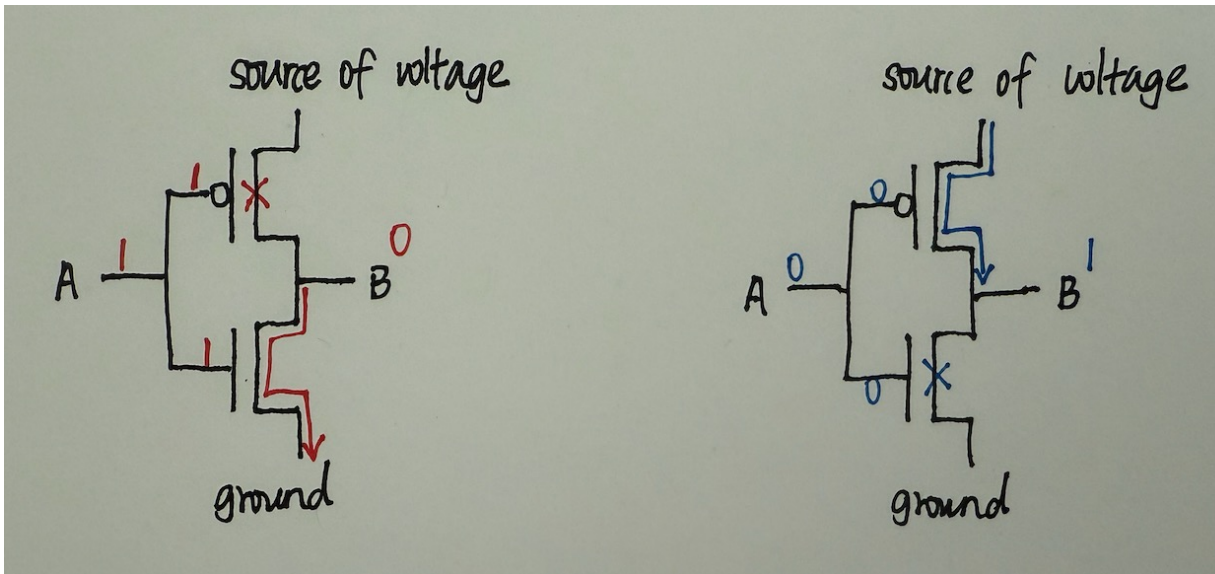 source of voltage
1
0
A
1
B
1
ground
source of voltage
0
1
A
0
B
0
ground